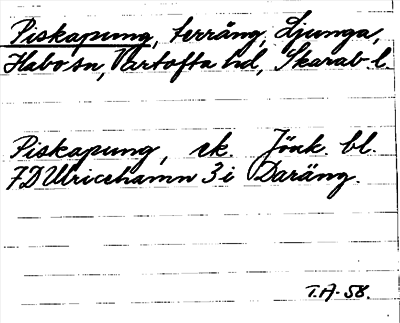 Piskapung, terräng, Ljunga,
Habo sn, Vartofta hd, Skarab. l.
Piskapung, ek. Jönk. bl.
7D Ulricehamn 3 i Daräng.
T.A-58.